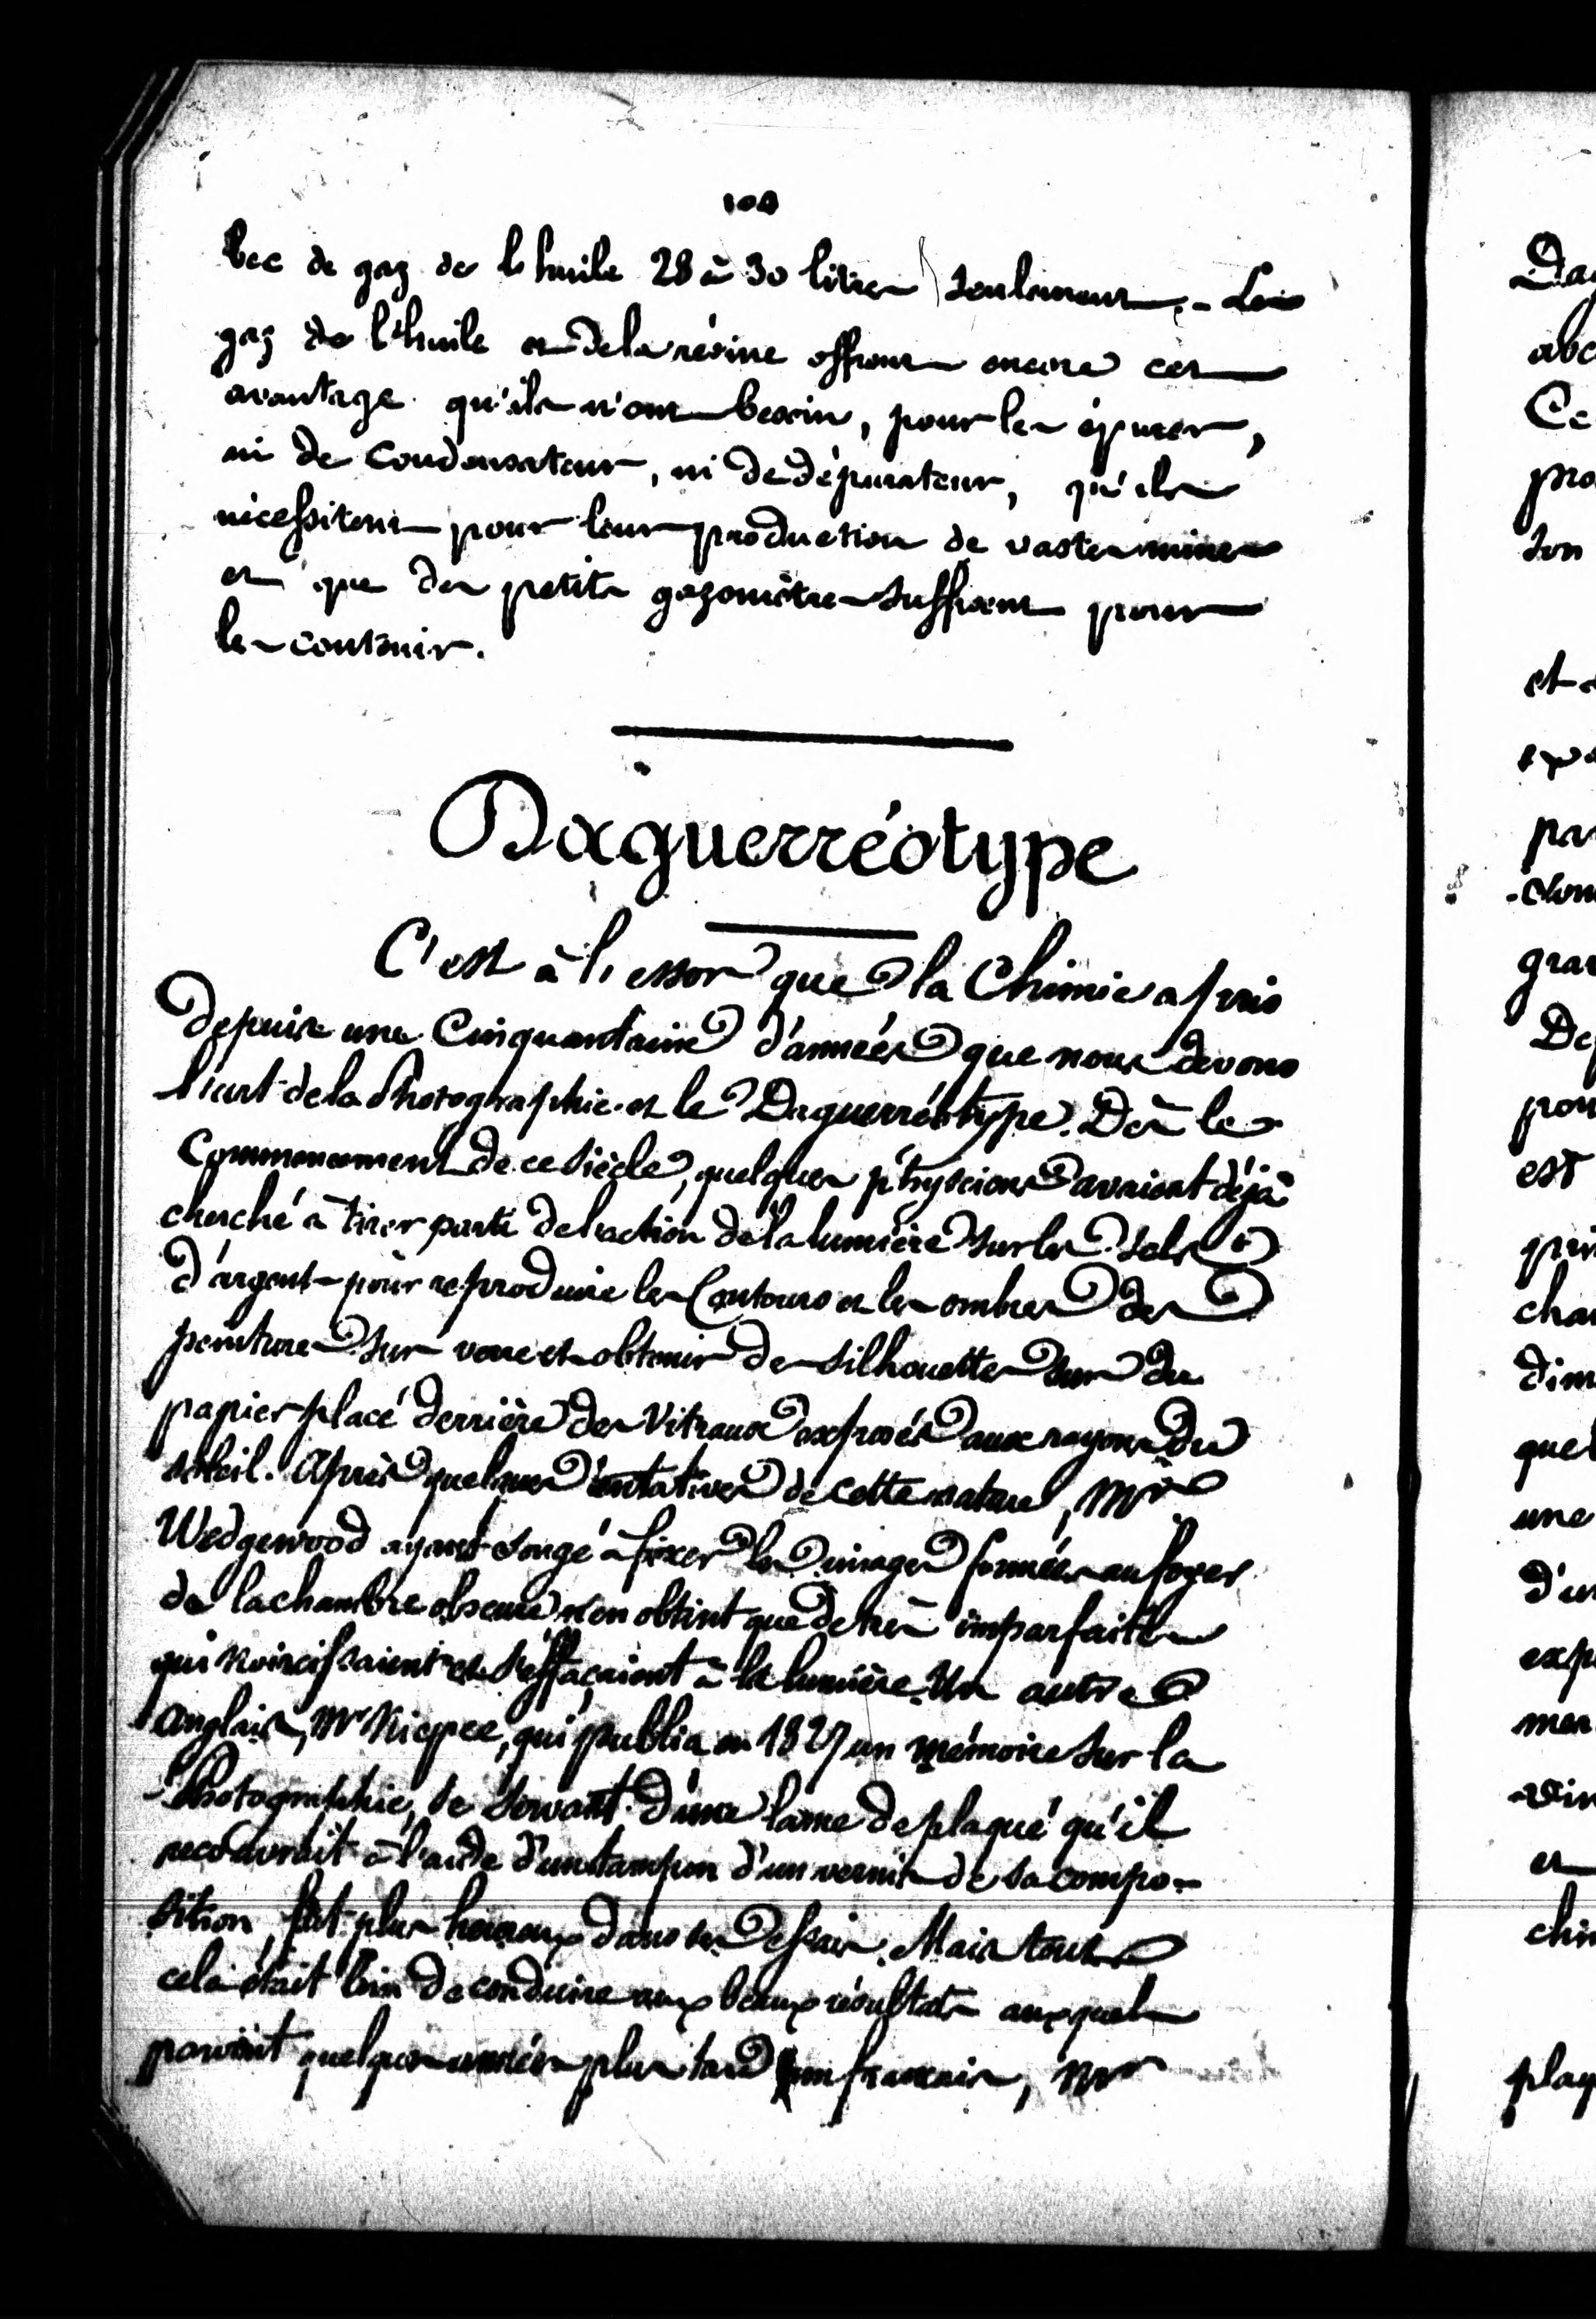 bec de gaz de l'huile 28 à 30 litres seulement. - Les
gaz de l'huile et de la résine offrent encore cet
avantage qu'ils n'ont besoin, pour les épurer,
ni de condensateur, ni de dépurateur, qu'ils
nécessitent pour leur production de vastes mines
et que des petits gazomètres suffisent pour
les contenir.
Daguerréotype
C'est à l'essor que la Chimie a pris
depuis une Cinquantaine d'années que nous devons
l'art de la Photographie et le Daguerréotype. Dès le
Commencement de ce siècle, quelques physiciens avaient déjà
cherché à tirer parti de l'action de la lumière sur les sels
d'argent pour reproduire les Contours et les ombres des
peintures sur verre et obtenir des silhouettes sur du
papier placé derrière des Vitraux exposés aux rayons du
soleil. Après quelques tentatives de cette nature, Mr
Wedgewood ayant songé à fixer les images formées au foyer
de la chambre obscure n'en obtint que de très imparfaites
qui noircissaient et s'effaçaient à la lumière. Un autre
Anglais, Mr Niepce, qui publia en 1827 un mémoire sur la
Photographie, se servant d'une lame de plaqué qu'il
recouvrait à l'aide d'un tampon d'un vernis de sa compo-
sition, fut plus heureux dans ses essais. Mais tout
cela était loin de conduire aux beaux résultats auxquels
parvint quelques années plus tard un français, Mr
Ce
et
est
une